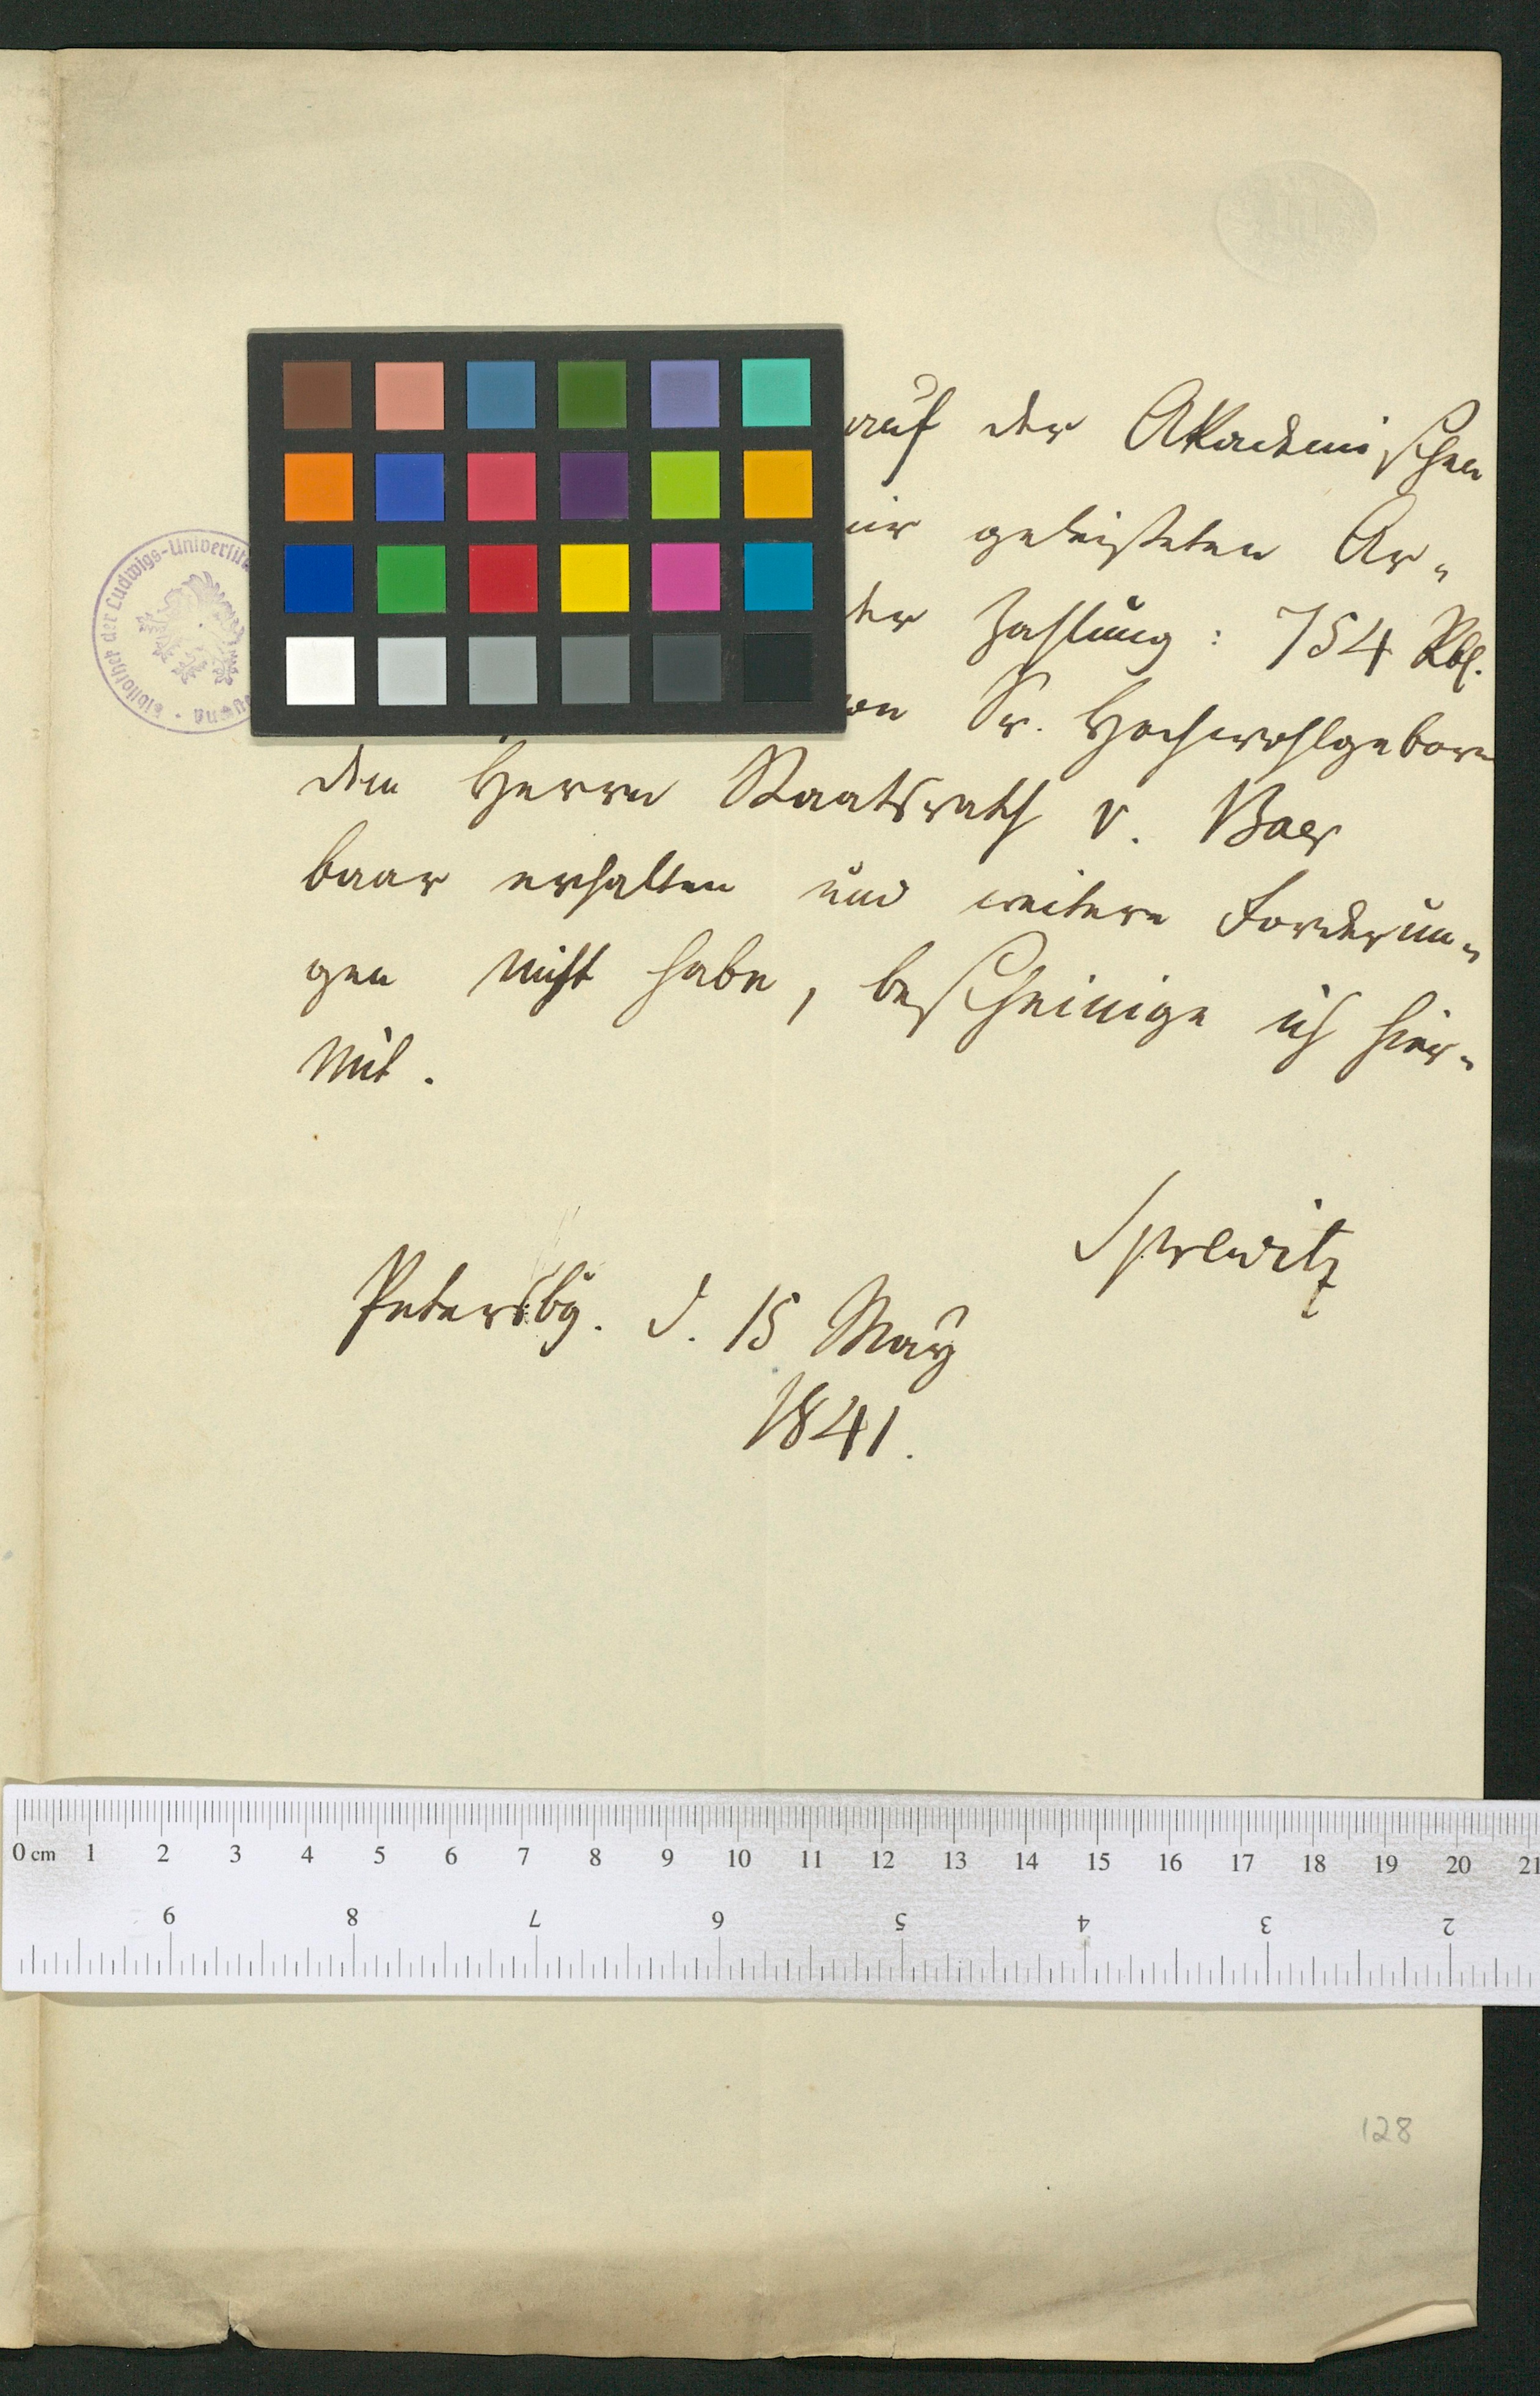 auf der Akademischen
mir geleisteten Ar-
der Zahlung: 754 Rbl.
von Sr. Hochwohlgeboren
dem Herrn Staatsrath v. Baer
baar erhalten und weitere Forderun-
gen nicht habe, bescheinige ich hier-
mit.
Sprewitz
Petersbg. d. 15 May
1841.
Bibliothek der Ludwigs-Universität
0 cm 1 2 3 4 5 6 7 8 9 10 11 12 13 14 15 16 17 18 19 20 21
9 8 7 6 5 4 3 2
128